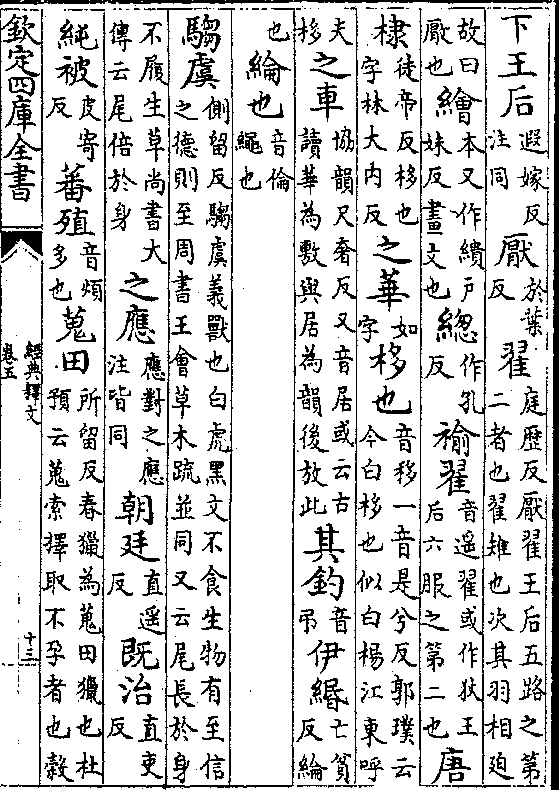 下王后遐嫁反注同厭於葉反翟庭歴反厭翟王后五路之第二者也翟雉也次其羽相廹
故曰厭也繪本又作繢戸妹反畫文也總作孔反褕翟音遥翟或作狄王后六服之第二也唐
棣徒帝反移也字林大内反之華如字栘也音移一音是兮反郭璞云今白栘也似白楊江東呼
夫栘之車協韻尺奢反又音居或云古讀華為敷與居為韻後放此其釣音弔伊緡亡貧反綸
也綸也音倫繩也
騶虞側留反騶虞義獸也白虎黑文不食生物有至信之德則至周書王會草木疏並同又云尾長於身
不履生草尚書大傳云尾倍於身之應應對之應注皆同朝廷直遥反既治直吏反
純被皮寄反蕃殖音煩多也蒐田所留反春獵為蒐田獵也杜預云蒐索擇取不孕者也穀
欽定四庫全書
經典釋文
卷五
十三